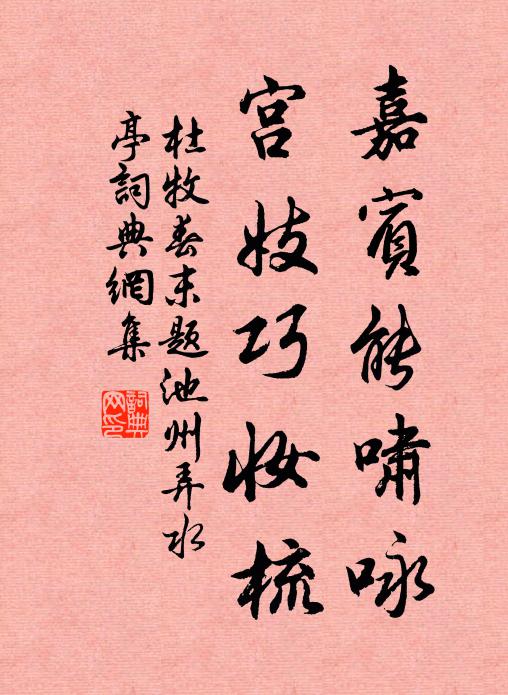 嘉賓能嘯咏
宮妓巧妆梳
杜牧春末題池州弄水
亭詞典網集
詞典
网印